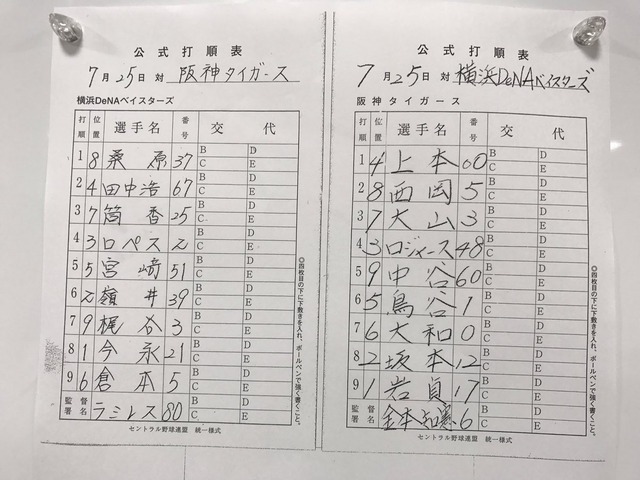 公式打順表
7月25日 対 阪神タイガース
横浜DeNAベイスターズ
打順 位置 選手名 番号 交代
1 8 桑原 37 B C D E
2 4 田中浩 67 B C D E
3 7 筒香 25 B C D E
4 3 ロペス 2 B C D E
5 5 宮﨑 51 B C D E
6 2 嶺井 39 B C D E
7 9 梶谷 3 B C D E
8 1 今永 21 B C D E
9 6 倉本 5 B C D E
監督署名 ラミレス 80 B C D E
セントラル野球連盟 統一様式
◎四枚目の下に下敷きを入れ、ボールペンで強く書くこと。
公式打順表
7月25日 対 横浜DeNAベイスターズ
阪神タイガース
打順 位置 選手名 番号 交代
1 4 上本 00 B C D E
2 8 西岡 5 B C D E
3 7 大山 3 B C D E
4 3 ロジャース 48 B C D E
5 9 中谷 60 B C D E
6 5 鳥谷 1 B C D E
7 6 大和 0 B C D E
8 2 坂本 12 B C D E
9 1 岩貞 17 B C D E
監督署名 金本知憲 6 B C D E
セントラル野球連盟 統一様式
◎四枚目の下に下敷きを入れ、ボールペンで強く書くこと。